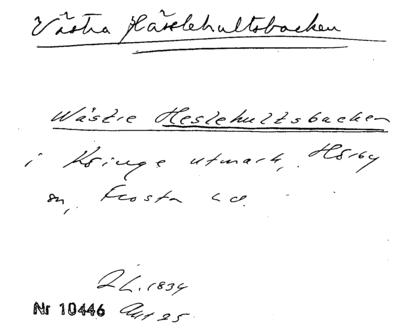 Västra Hässlehultsbacken
Wästre Heslehultsbacken
i Kringe utmark, Hörby
sn, Frosta hd.
JL. 1834
Nr 10446 Akt 25